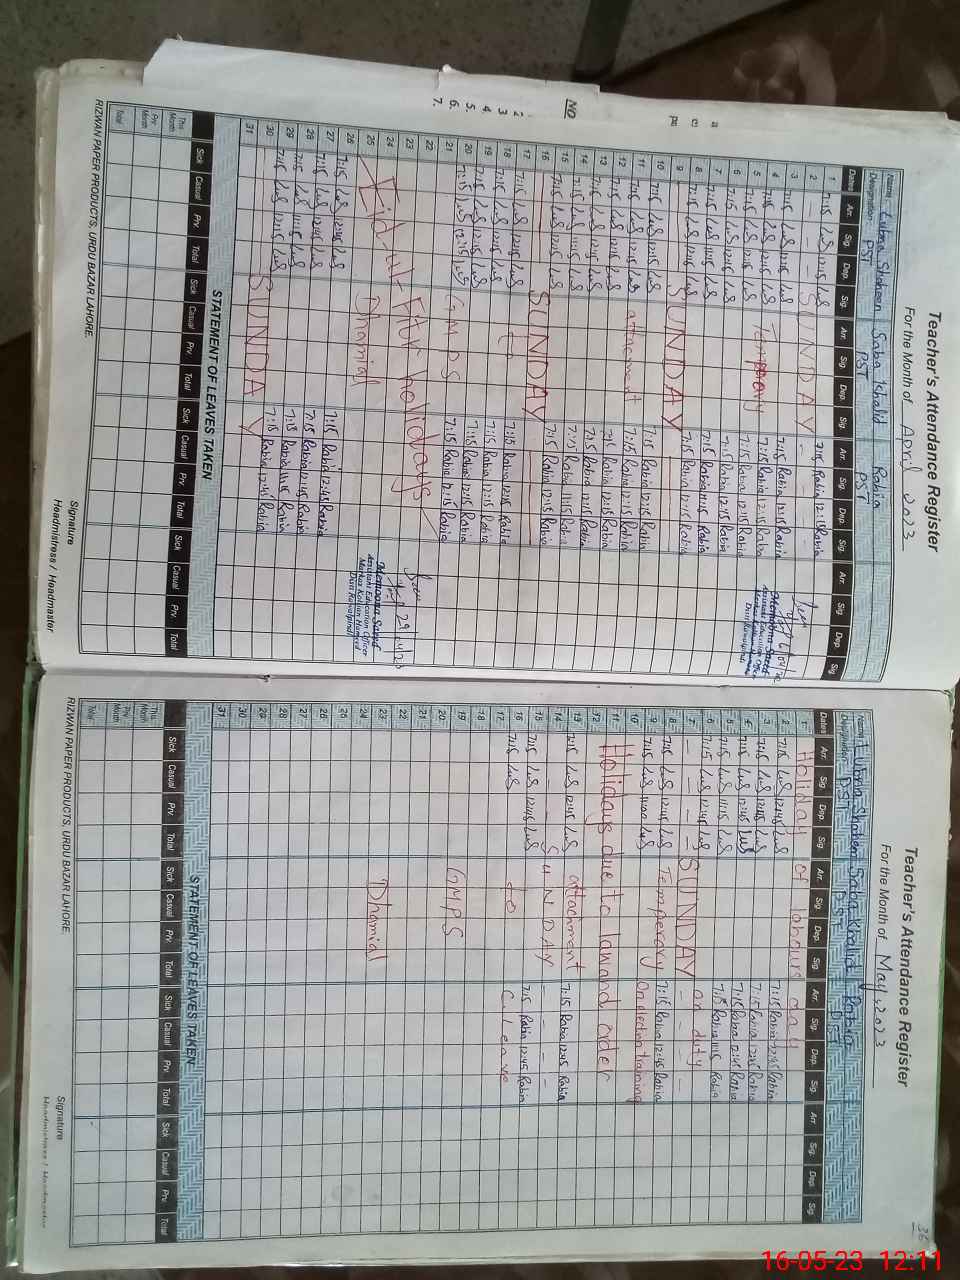 Teacher's Attendance Register
For the Month of April 2023
Name Lubna Shaheen Saba Khalid Rabia
Designation PST PST PST
Dates Arr. Sig. Dep. Sig. Arr. Sig. Dep. Sig. Arr. Sig. Dep. Sig. Arr. Sig. Dep. Sig.
1 7:15 LuS 12:15 LuS 7:15 Rabia 12:15 Rabia
2 SUNDAY
3 7:15 LuS 12:15 LuS 7:15 Rabia 12:15 Rabia
4 7:15 LuS 12:15 LuS 7:15 Rabia 12:15 Rabia
5 7:15 LuS 12:15 LuS Temperary 7:15 Rabia 12:15 Rabia
6 7:15 LuS 12:15 LuS 7:15 Rabia 12:15 Rabia
7 7:15 LuS 11:15 LuS 7:15 Rabia 11:15 Rabia
8 7:15 LuS 12:15 LuS 7:15 Rabia 12:15 Rabia
9 SUNDAY
10 7:15 LuS 12:15 LuS 7:15 Rabia 12:15 Rabia
11 7:15 LuS 12:15 LuS 7:15 Rabia 12:15 Rabia
12 7:15 LuS 12:15 LuS attachment 7:15 Rabia 12:15 Rabia
13 7:15 LuS 12:15 LuS 7:15 Rabia 12:15 Rabia
14 7:15 LuS 7:15 Rabia
15 7:15 LuS 7:15 Rabia
16 SUNDAY
17 7:15 LuS 12:15 LuS
18 7:15 LuS 12:15 LuS to 7:15 Rabia 12:15 Rabia
19 7:15 LuS 12:15 LuS 7:15 Rabia 12:15 Rabia
20 7:15 LuS 12:15 LuS 7:15 Rabia 12:15 Rabia
21 GMPS 7:15 Rabia 12:15 Rabia
22
23 Eid-ul-Fitr holidays
24
25 Dhamial
26
27 7:15 LuS 12:45 LuS 7:15 Rabia 12:45 Rabia
28 7:15 LuS 12:45 LuS 7:15 Rabia 12:45 Rabia
29 7:15 LuS 11:15 LuS 7:15 Rabia 11:15 Rabia
30 7:15 LuS 12:15 LuS 7:15 Rabia 12:45 Rabia
31 SUNDAY
Memoona Saeed
Assistant Education Officer
Distt Rawalpindi
29/4/23
Memoona Saeed
Assistant Education Officer
Markaz Kolian Hameed
Distt Rawalpindi
STATEMENT OF LEAVES TAKEN
Sick Casual Prv. Total Sick Casual Prv. Total Sick Casual Prv. Total Sick Casual Prv. Total
This Month
Prv. Month
Total
Signature
Headmistress / Headmaster
RIZWAN PAPER PRODUCTS, URDU BAZAR LAHORE.
Teacher's Attendance Register
For the Month of May, 2023
Name Lubna Shaheen Saba Khalid Rabia
Designation PST PST PST
Dates Arr. Sig. Dep. Sig. Arr. Sig. Dep. Sig. Arr. Sig. Dep. Sig. Arr. Sig. Dep. Sig.
1 Holiday of labour day
2 7:15 LuS 12:45 LuS 7:15 Rabia 12:45 Rabia
3 7:15 LuS 12:45 LuS 7:15 Rabia 12:45 Rabia
4 7:15 LuS 12:45 LuS 7:15 Rabia 12:45 Rabia
5 7:15 LuS 11:15 LuS 7:15 Rabia 11:15 Rabia
6 7:15 LuS 12:45 LuS on duty
7 SUNDAY
8 7:15 LuS 12:45 LuS Temperary 7:15 Rabia 12:45 Rabia
9 7:15 LuS 11:00 LuS On election training
10
11 Holidays due to law and order
12
13 7:15 LuS 12:45 LuS attachment 7:15 Rabia 12:45 Rabia
14 SUNDAY
15 7:15 LuS 12:45 LuS 7:15 Rabia 12:45 Rabia
16 7:15 LuS to C. Leave
17
18
19 GMPS
20
21
22
23 Dhamial
24
25
26
27
28
29
30
31
STATEMENT OF LEAVES TAKEN
Sick Casual Prv. Total Sick Casual Prv. Total Sick Casual Prv. Total Sick Casual Prv. Total
This Month
Prv. Month
Total
Signature
Headmistress / Headmaster
RIZWAN PAPER PRODUCTS, URDU BAZAR LAHORE.
36
NO
2
3
4.
5.
6.
7.
16-05-23 12:11